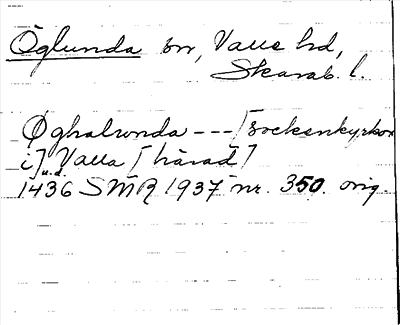 Öglunda sn, Valle hd,
Skarab. l.
Øghalunda --- [sockenkyrkon
i] Valla [härad]
u.d.
1436 SMR 1937 nr. 350. orig.